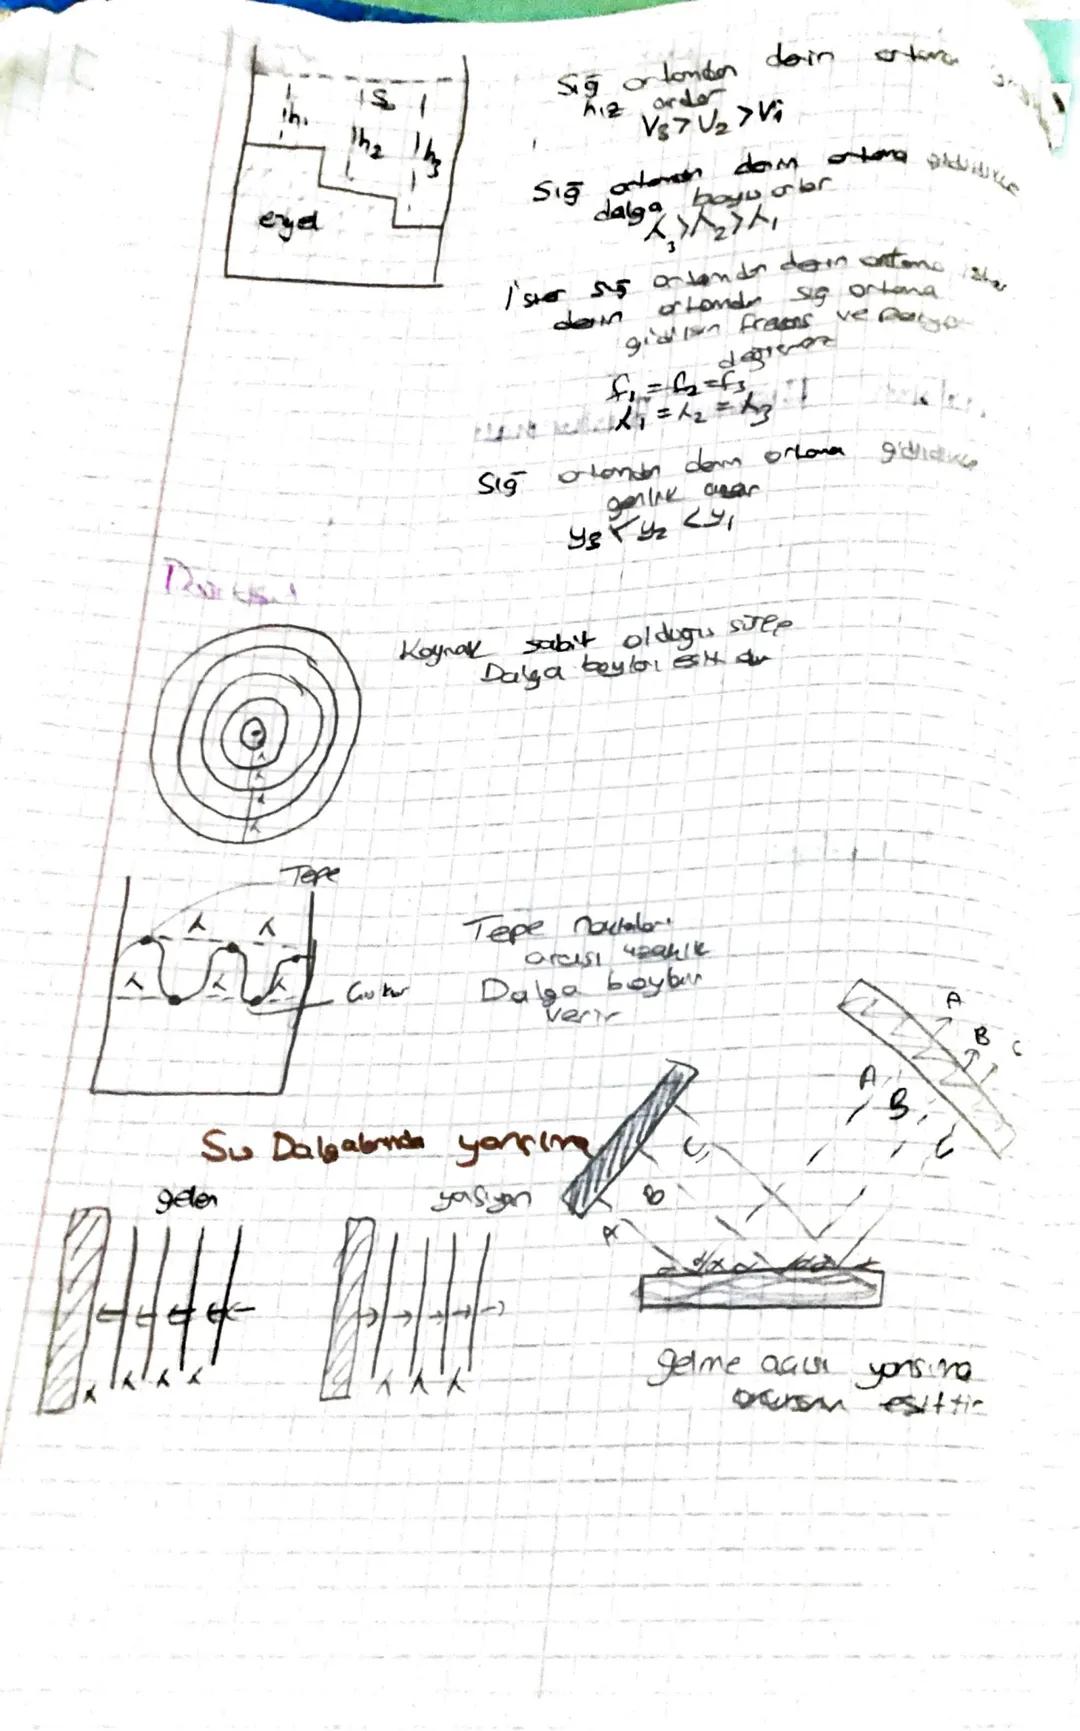 Su
h₁ h₂ h₃
engel
Sığ ortamdan derin ortama
hız artar
V₃ > V₂ > V₁
Sığ ortamdan derin ortama gidildikçe
dalga boyu artar
λ₃ > λ₂ > λ₁
İster sığ ortamdan derin ortama ister
derin ortamdan sığ ortama
gidilsin frekans ve
değişmez
f₁ = f₂ = f₃
λ₁ = λ₂ = λ₃
Sığ ortamdan derin ortama gidildikçe
genlik azalır
y₃ < y₂ < y₁
Dairesel
Kaynak sabit olduğu sürece
Dalga boyları eşit dir
λ
λ
λ
λ
Tepe
λ λ
λ λ λ
Çukur
Tepe noktaları
arası uzaklık
Dalga boyun
verir
A
B
C
A B C
Su Dalgalarında yansıma
gelen
yansıyan
C
B
A
λ λ λ λ
λ λ λ
gelme açısı yansıma
açısına eşittir